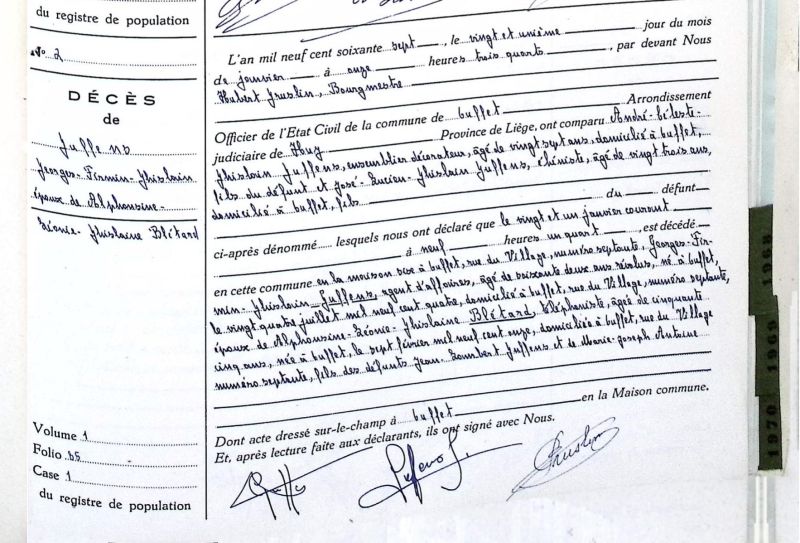 du registre de population
No 2
DÉCÈS
de
Juffens
Georges-Firmin-Ghislain
époux de Alphonsine-
Léonie-Ghislaine Blétard
Volume 1
Folio 65
Case 1
du registre de population
L'an mil neuf cent soixante sept, le vingt et unième jour du mois
de janvier à onze heures trois quarts, par devant Nous
Hubert Gruslin, Bourgmestre
Officier de l'Etat Civil de la commune de Buffet Arrondissement
judiciaire de Huy Province de Liège, ont comparu André-Céleste-
Ghislain Juffens, ensemblier décorateur, âgé de vingt sept ans, domicilié à Buffet,
fils du défunt et José-Lucien-Ghislain Juffens, chimiste, âgé de vingt trois ans,
domicilié à Buffet, fils du défunt
ci-après dénommé lesquels nous ont déclaré que le vingt et un janvier courant
à neuf heures un quart, est décédé
en cette commune en la maison sise à Buffet, rue du Village, numéro septante, Georges-Fir-
min-Ghislain Juffens, agent d'affaires, âgé de soixante deux ans révolus, né à Buffet,
le vingt quatre juillet mil neuf cent quatre, domicilié à Buffet, rue du Village, numéro septante,
époux de Alphonsine-Léonie-Ghislaine Blétard, téléphoniste, âgée de cinquante
cinq ans, née à Buffet, le sept février mil neuf cent onze, domiciliée à Buffet, rue du Village
numéro septante, fils des défunts Jean-Lambert Juffens et de Marie-Joseph Antoine
Dont acte dressé sur-le-champ à Buffet en la Maison commune.
Et, après lecture faite aux déclarants, ils ont signé avec Nous.
Juffens J.
Gruslin
1968
1969
1970